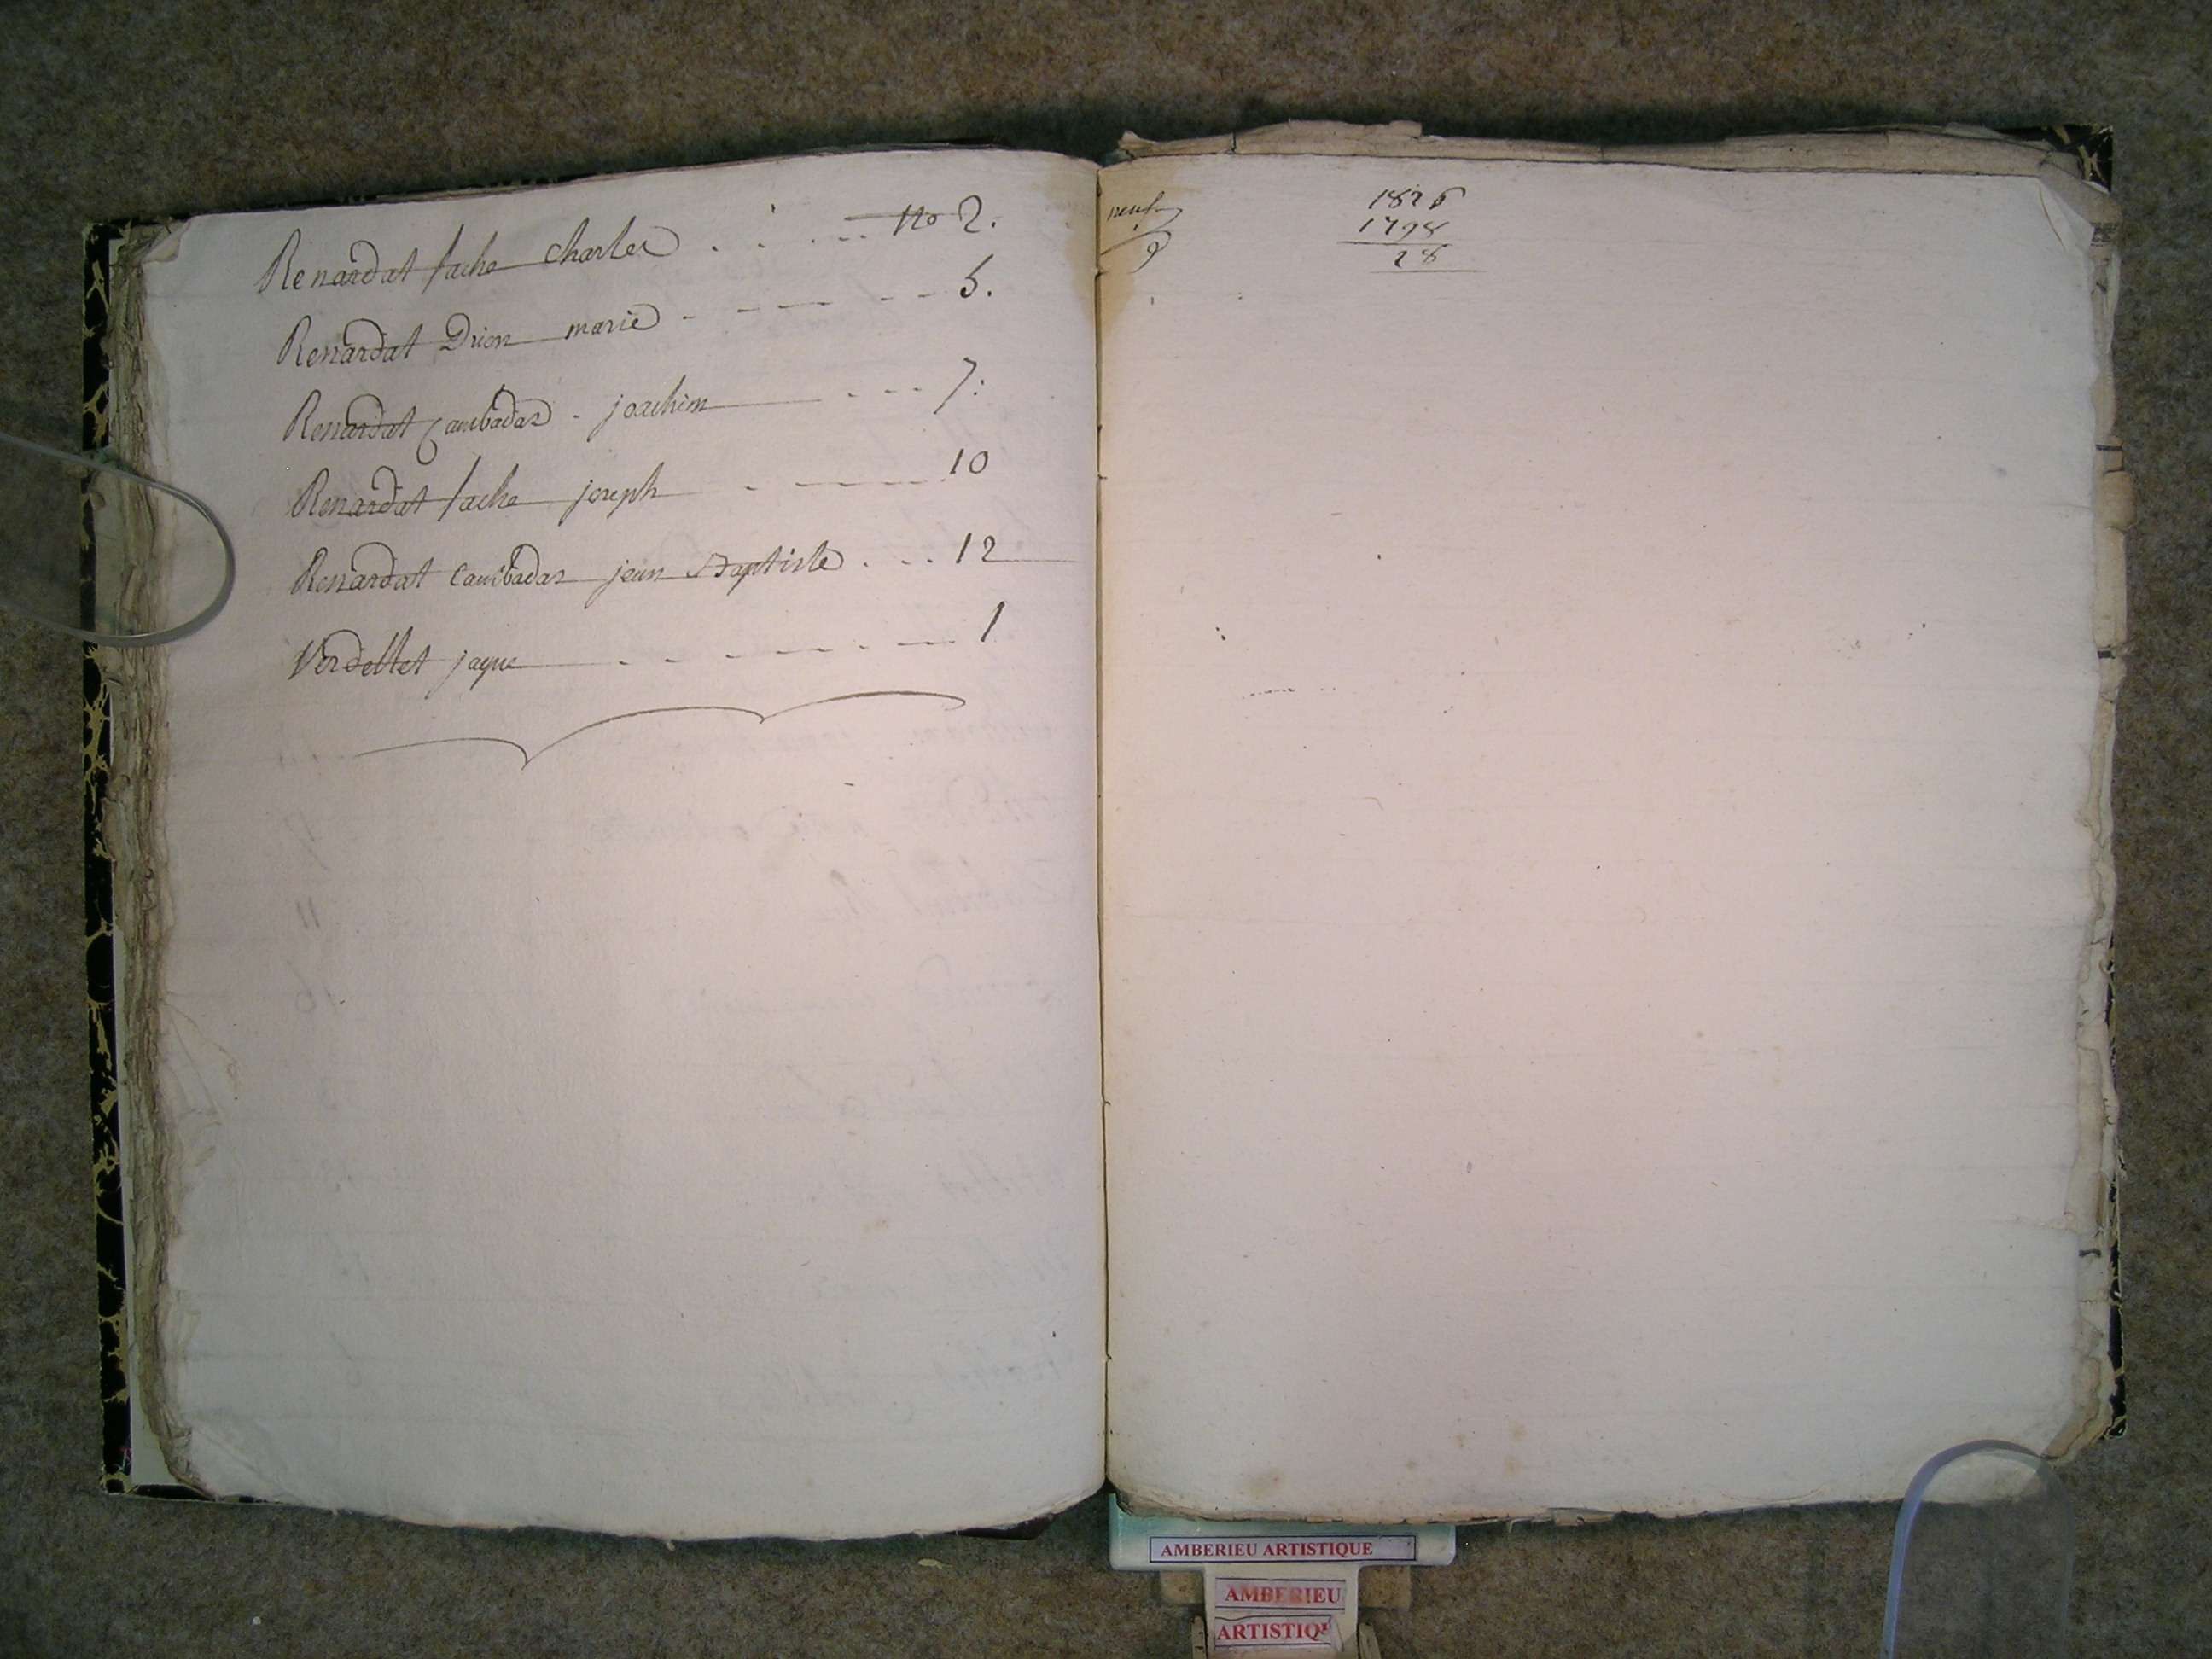 Renardat fache Charles . . ... no 2.
Renardat Drion marie - - — - - 5.
Renardat Cambadar - joachim — - - - 7:
Renardat fache joseph - — - - 10
Renardat Cambadar jean Baptiste . . . 12
Verdellet jaque - - - - - — 1
neuf
9
1826
1798
28
AMBERIEU ARTISTIQUE
AMBERIEU
ARTISTIQ